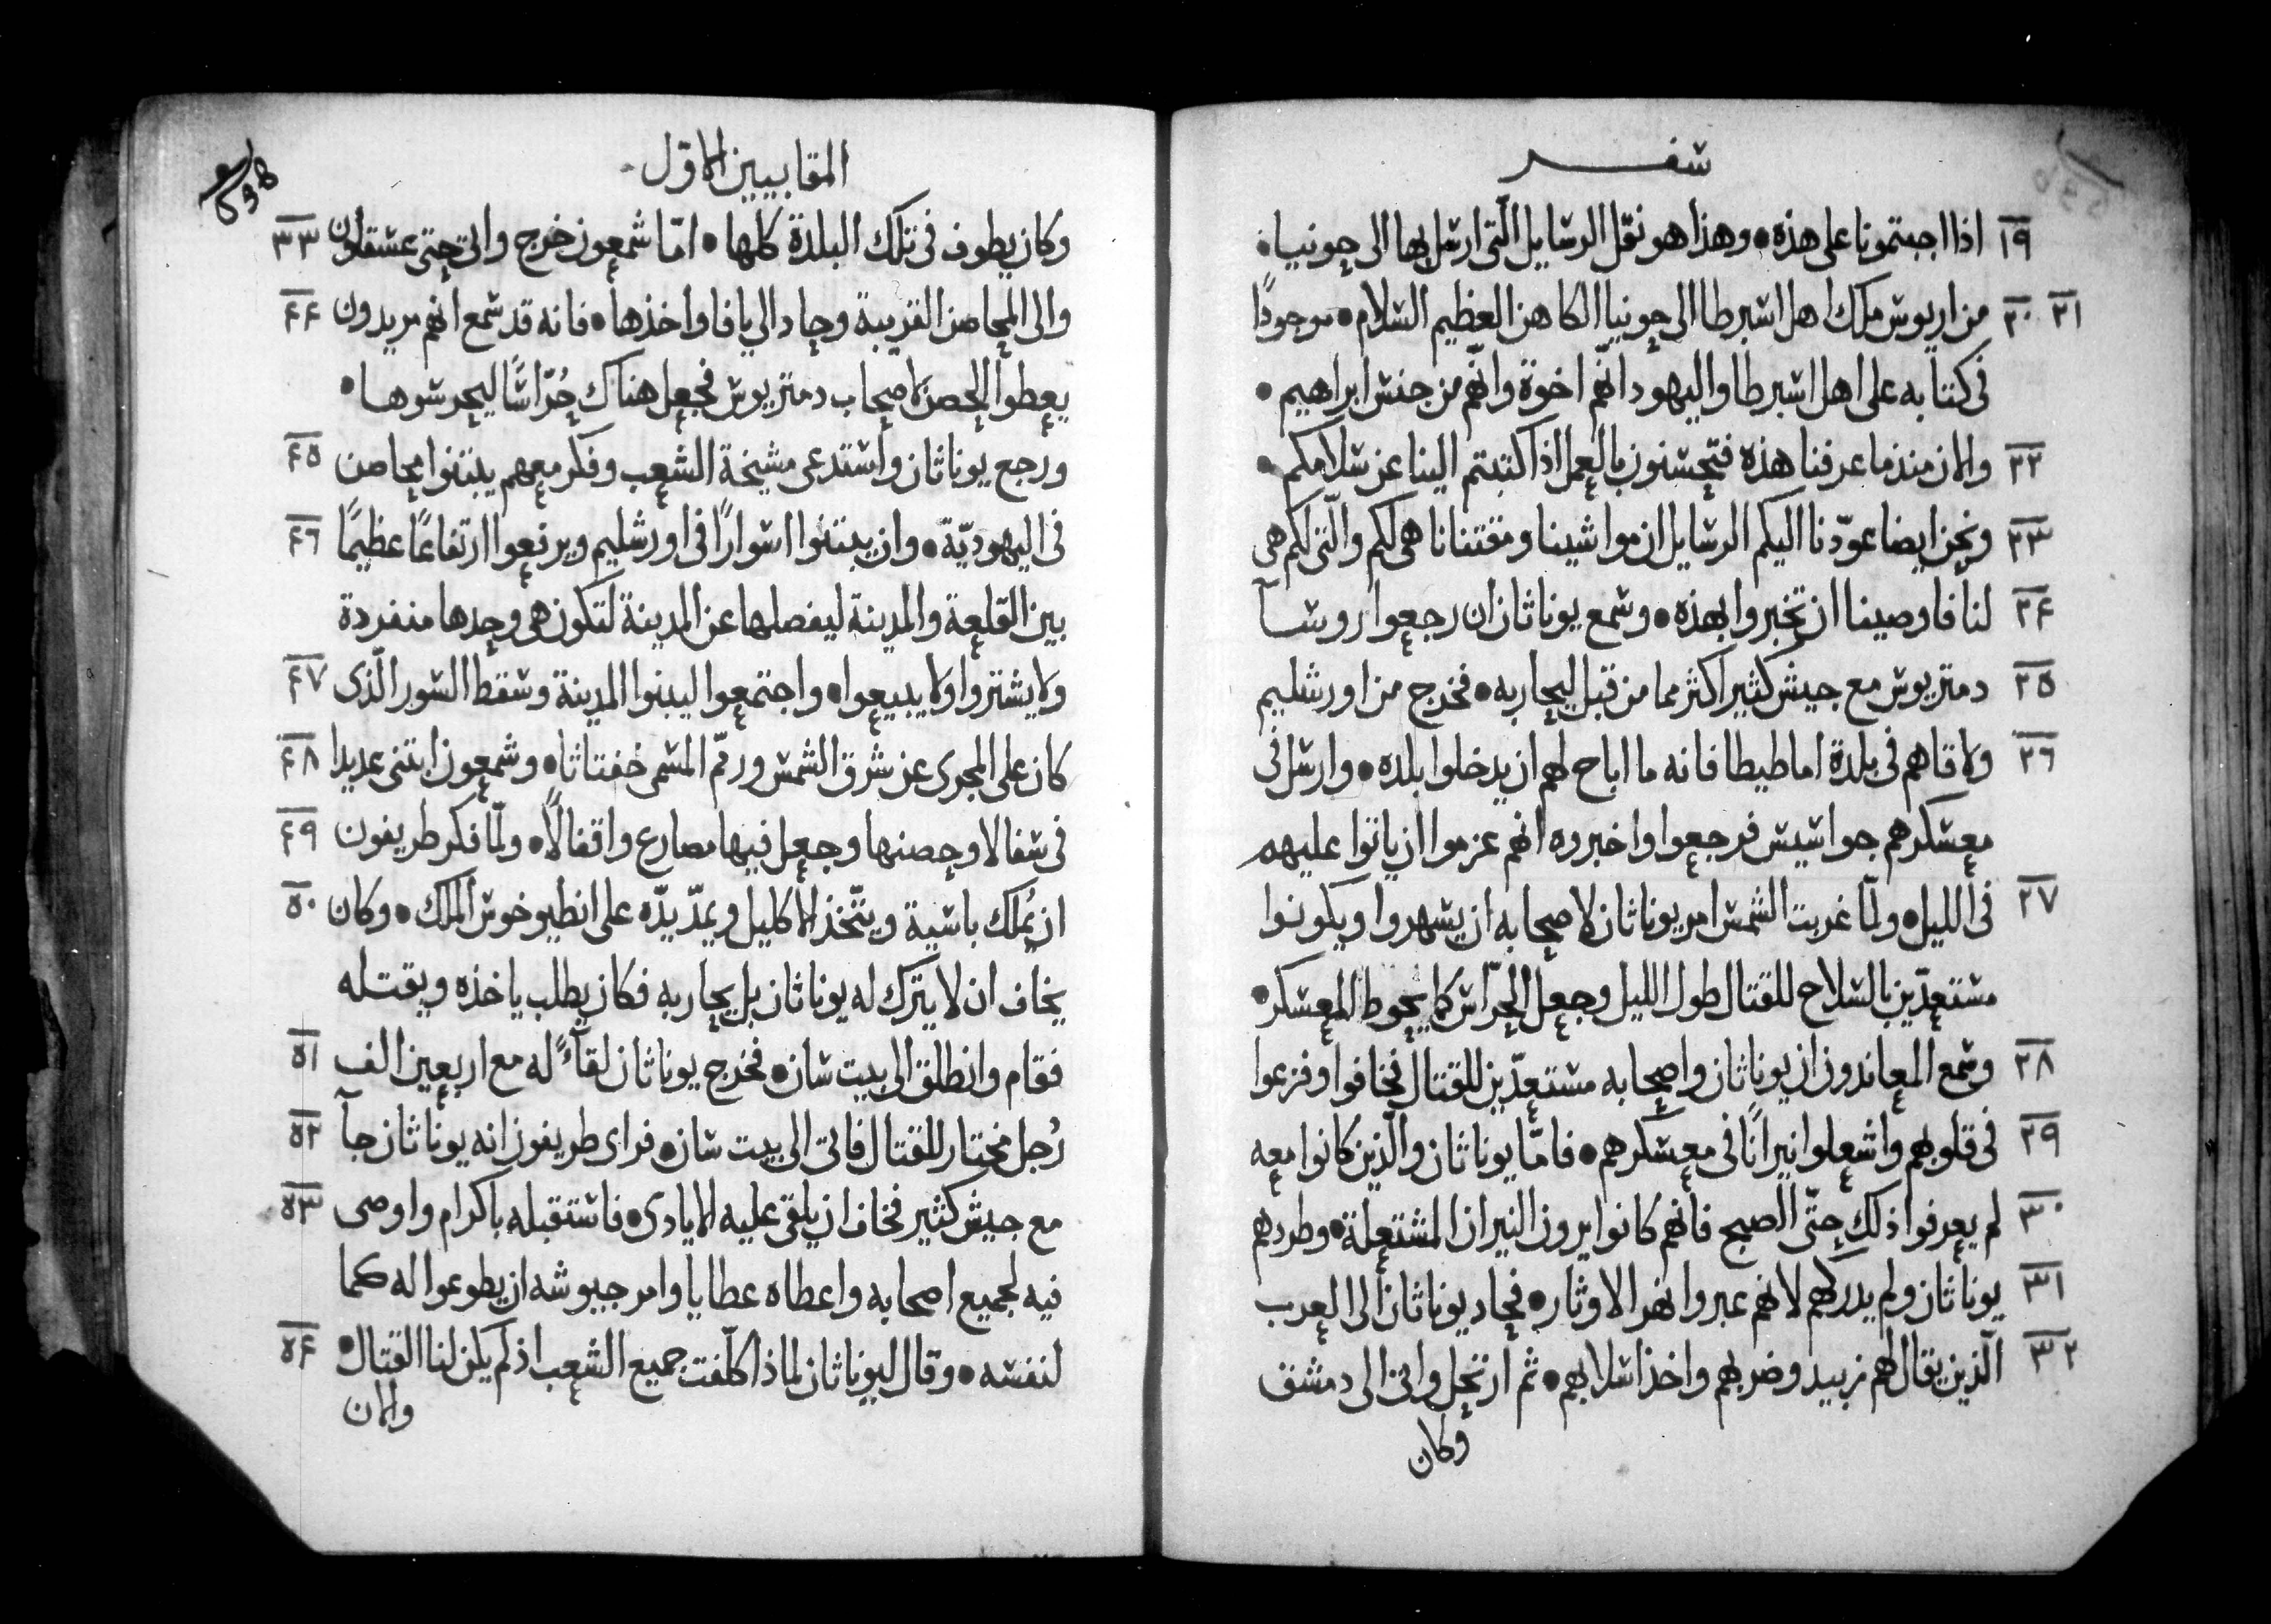 سفر
١٩ اذا اجبتمونا على هذه • وهذا هو نقل الرسايل الّتى ارسل بها الى حونيا •
٢٠ ٢١ من اريوس ملك اهل اسبرطا الى حونيا الكاهن العظيم السلام • موجودًا
فى كتابه على اهل اسبرطا واليهود انهّم اخوة وانهّم من جنس ابراهيم •
٢٢ والان منذ ما عرفنا هذه فتحسنون بالعمل اذا كتبتم الينا عن سلامكم •
٢٣ ونحن ايضا عوّدنا اليكم الرسايل ان مواشينا ومقتنانا هى لكم والّتى لكم هى
٢٤ لنا فاوصينا ان تخبروا بهذه • وسمع يوناثان ان رجعوا روسآ
٢٥ دمتريوس مع جيش كثير اكثر مما من قبل ليحاربه • فخرج من اورشليم
٢٦ ولاقاهم فى بلدة اماطيطا فانه ما اباح لهم ان يدخلوا بلده • وارسل فى
معسكرهم جواسيس فرجعوا واخبروه انهم عزموا ان ياتوا عليهم
٢٧ فى الليل • ولمّا غربت الشمس امر يوناثان لاصحابه ان يسهروا ويكونوا
مستعدّين بالسلاح للقتال طول الليل وجعل الحرّاس كما يحوط المعسكر •
٢٨ وسمع المعاندون ان يوناثان واصحابه مستعدّين للقتال فخافوا وفزعوا
٢٩ فى قلوبهم واشعلوا نيرانًا فى معسكرهم • فامّا يوناثان والّذين كانوا معه
٣٠ لم يعرفوا ذلك حتّى الصبح فانهم كانوا يرون النيران المشتعلة • وطردهم
٣١ يوناثان ولم يدركهم لانهم عبروا نهر الاوثار • فحاد يوناثان الى العرب
٣٢ الّذين يقال لهم زبيد وضربهم واخذ اسلابهم • ثم ارتحل واتى الى دمشق
وكان
المقابيين الاوّل
وكان يطوف فى تلك البلدة كلها • امّا شمعون خرج واتى حتى عسقلون ٣٣
والى المحاصن القريبة وحاد الى يافا واخذها • فانه قد سمع انهم مريدون ٤٤
يعطوا الحصن لاصحاب دمتريوس فجعل هناك حُرّاسًا ليحرسوها •
ورجع يوناثان واستدعى مشيخة الشعب وفكر معهم يبتنوا محاصن ٤٥
فى اليهوديّة • وان يبتنوا اسوارًا فى اورشليم ويرفعوا ارتفاعًا عظيمًا ٤٦
بين القلعة والمدينة ليفصلها عن المدينة لتكون هى وحدها منفردة
ولا يشتروا ولا يبيعوا • واجتمعوا ليبنوا المدينة وسقط السور الّذى ٤٧
كان على المجرى عن شرق الشمس ورمّم المسمى خفتاثا • وشمعون ابتنى عديدا ٤٨
فى سفالا وحصنها وجعل فيها مصارع واقفالًا • ولمّا فكر طريفون ٤٩
ان يُملك باسية ويتّخذ الاكليل ويمدّ يدّه على انطيوخوس الملك • وكان ٥٠
يخاف ان لا يترك له يوناثان بل يحاربه فكان يطلب ياخذه ويقتله
فقام وانطلق الى بيت سان • فخرج يوناثان لقآءً له مع اربعين الف ٥١
رُجل مختار للقتال فاتى الى بيت سان • فراى طريفون انه يوناثان جآ ٥٢
مع جيش كثير فخاف ان يلقى عليه الايادى • فاستقبله باكرام واوصى ٥٣
فيه لجميع اصحابه واعطاه عطايا وامر جيوشه ان يطوعوا له كما
لنفسه • وقال ليوناثان لماذا كلّفت جميع الشعب اذ لم يكن لنا القتال • ٥٤
والان